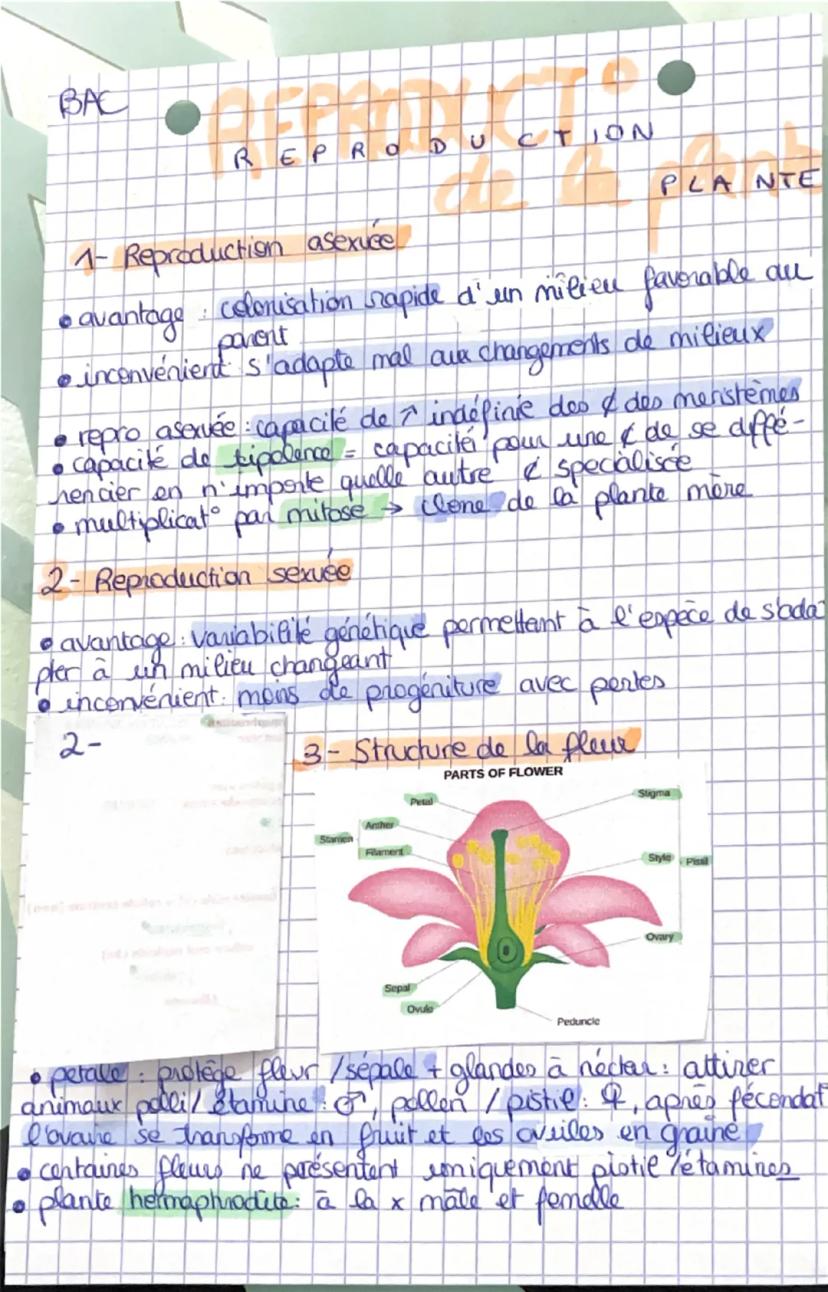 BAC
REPRODUCT°
REPRODUCTION
de la plante
PLANTE
1- Reproduction asexuée
• avantage : colonisation rapide d'un milieu favorable au
parent
• inconvénient s'adapte mal aux changements de milieux
• repro asexuée : capacité de ↗ indéfinie des ¢ des meristèmes
• capacité de tipolence = capacité pour une ¢ de se diffé-
rencier en n'importe quelle autre ¢ spécialisée
• multiplicat° par mitose → clone de la plante mère
2- Reproduction sexuée
• avantage : variabilité génétique permettant à l'espèce de s'ada
pter à un milieu changeant
• inconvénient : moins de progéniture avec pertes
2-
3- Structure de la fleur
PARTS OF FLOWER
Petal
Stigma
Anther
Stamen
Filament
Style
Pistil
Ovary
Sepal
Ovule
Peduncle
• petale : protège fleur / sépale + glandes à néctar : attirer
animaux polli / étamine : ♂, pollen / pistil : ♀, après fécondat
l'ovaire se transforme en fruit et les ovules en graine
• certaines fleurs ne présentent uniquement pistil / étamines
• plante hermaphrodite : à la x mâle et femelle